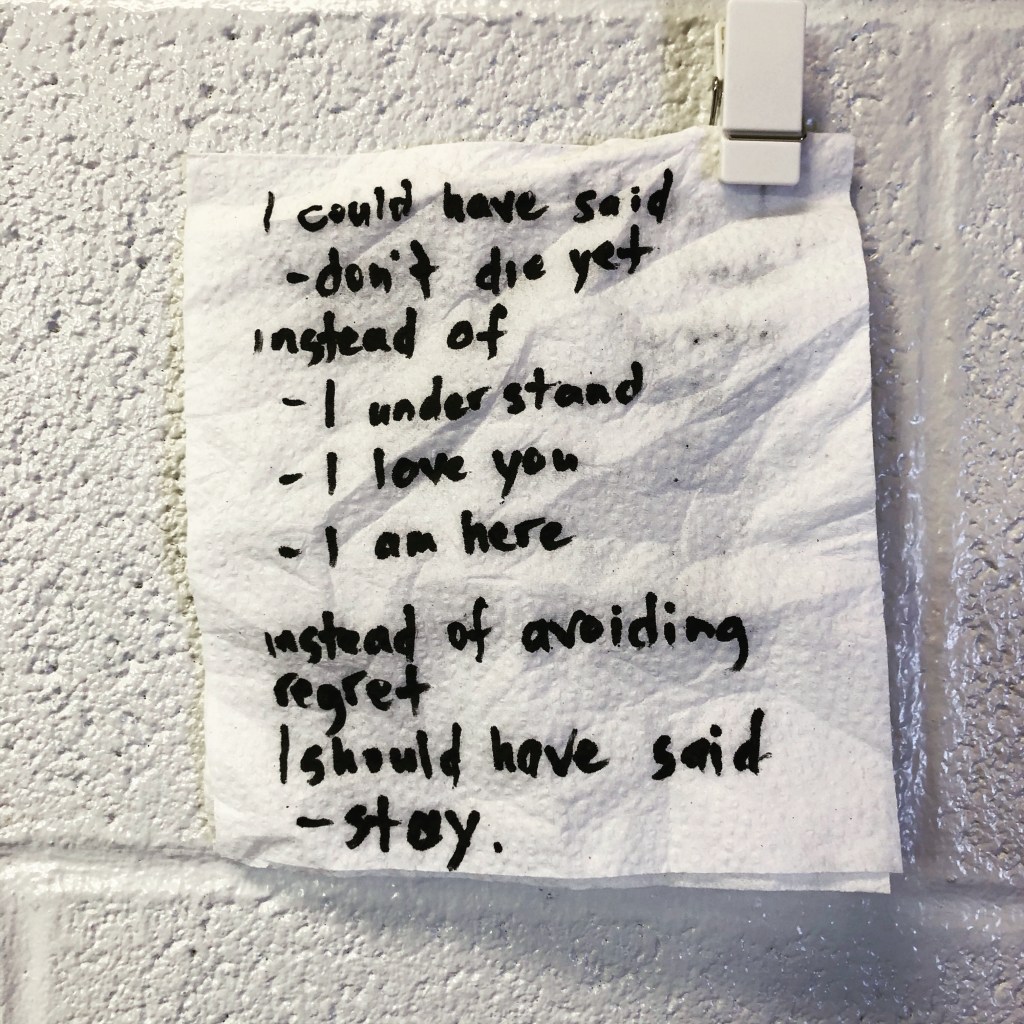 I could have said
-don't die yet
instead of
- I understand
- I love you
- I am here
instead of avoiding
regret
I should have said
-stay.